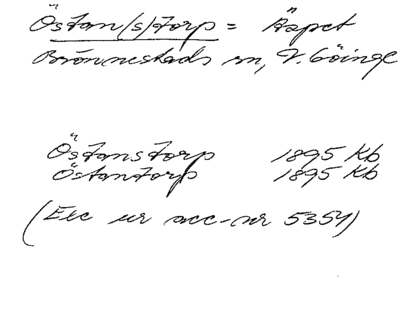 Östan(s)torp = Äspet
Brönnestads sn, V. Göinge
Östanstorp 1895 Kb
Östantorp 1895 Kb
(Exc ur acc-nr 5354)